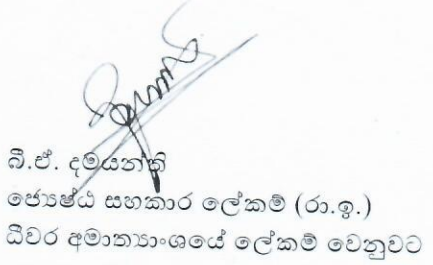 බී.ඒ. දමයන්ති
ජ්‍යෙෂ්ඨ සහකාර ලේකම් (රා.ඉ.)
ධීවර අමාත්‍යාංශයේ ලේකම් වෙනුවට